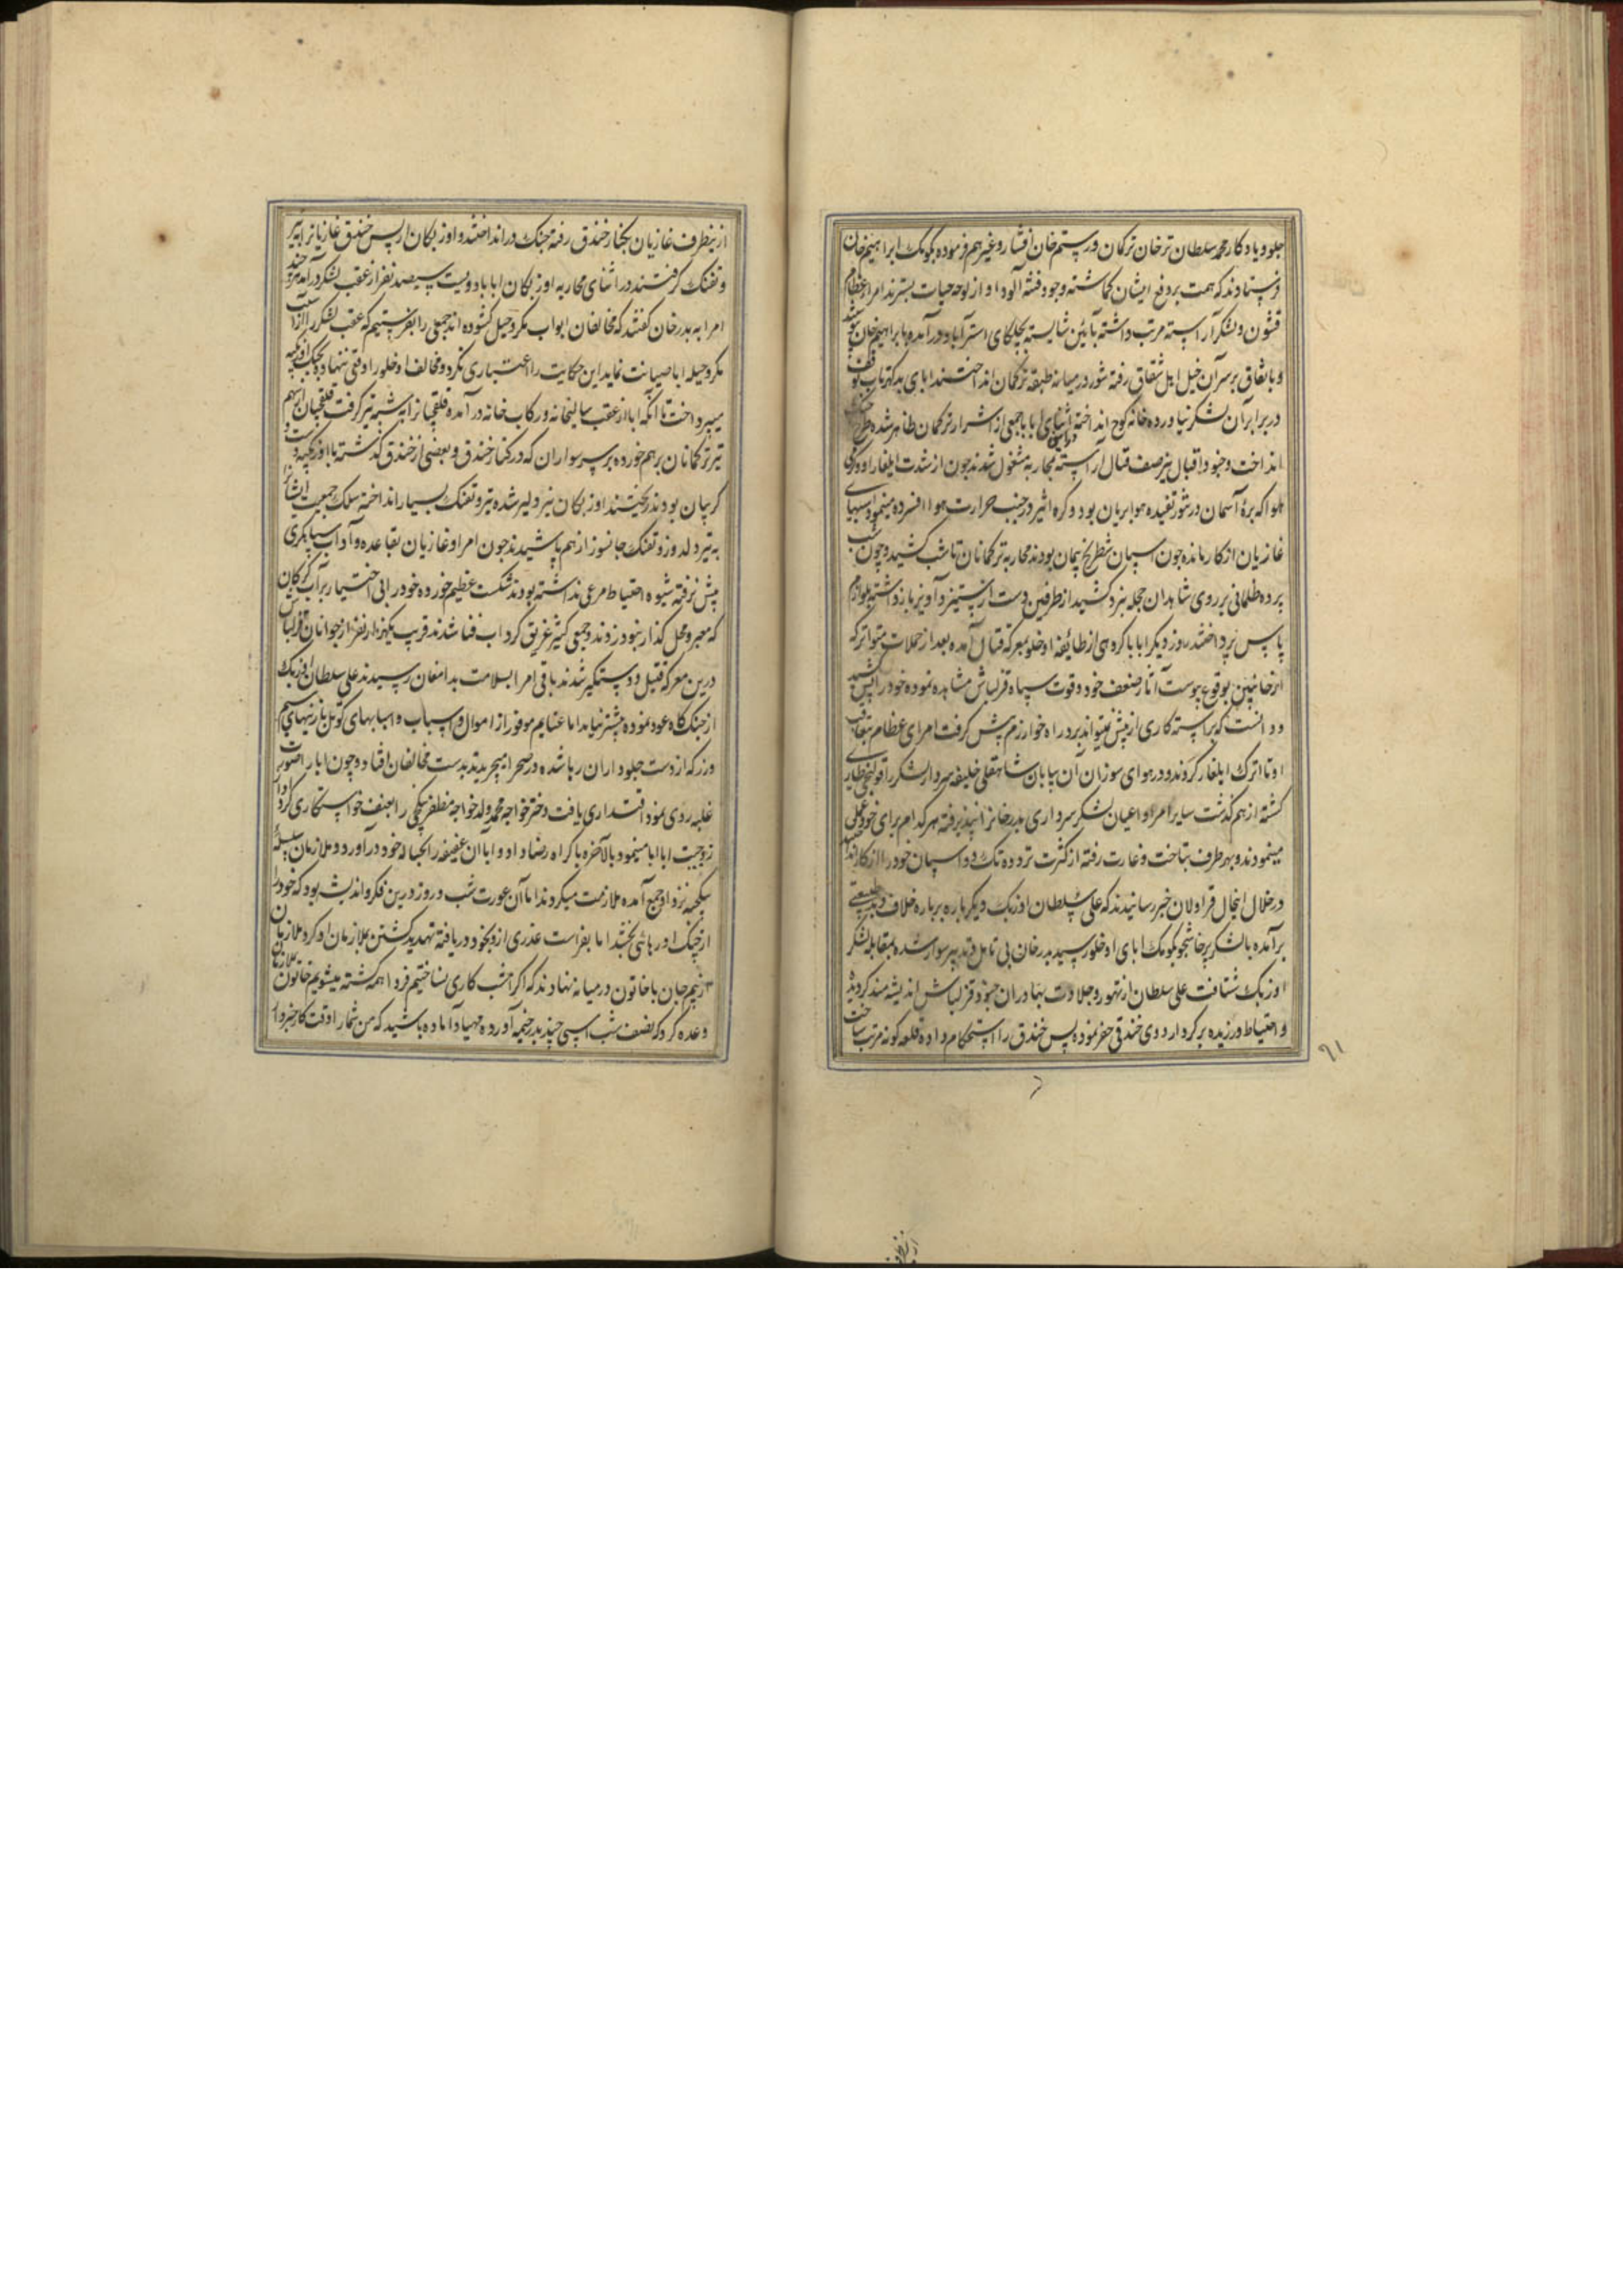 جلو و یادکار محمد سلطان ترخان ترکمان و رستم خان افشار و غیرهم فرموده بکومک ابراهیم خان
فرستادند که همت بر دفع ایشان کماشته وجود فتنه آلود او از لوحه حیات بسترند امراء عظام
قشون و لشکر آراسته مرتب داشته بآئین شایسته بجلکای استراباد درآمده با ابراهیم خان
و باتفاق بر سر آن خیل اهل شقاق رفته شور در میانه طبقه ترکمان انداختند ابای بدکهر تاب توقف
در برابر آن لشکر نیاورده خانه کوچ انداخته اثنای ابا با جمعی از اشرار ترکمان ظاهر شده طرح جنک
انداخت و جنود اقبال نیز صف قتال آراسته بمحاربه مشغول شدند چون از شدت ایلغار او و کرمی
هوا که بره آسمان در تنور تفیده هوا بریان بود و کره اثیر در جنب حرارت هوا افسرده مینمود اسبهای
غازیان از کار مانده چون اسپان شطرنج بیجان بودند محاربه ترکمانان تا شب کشید و چون شب
پرده ظلمانی بر روی شاهدان حجله نبرد کشید از طرفین دست از ستیز و آویز باز داشته بلوازم
پاس پرداختند روز دیکر ابا با کروهی از طایفه اوخلو بمعرکه قتال آمده بعد از حملات متواتر که
از جانبین بوقوع پیوست آثار ضعف خود و قوت سپاه قزلباش مشاهده نموده خود را پس کشید
و دانست که برابسته کاری از پیش نمیتواند برد راه خوارزم پیش کرفت امرای عظام بتعاقب
او تا اترک ایلغار کردند و در هوای سوزان آن بیابان شاهقلی خلیفه سردار لشکر را قولنجی طاری
کشته از هم کذشت سایر امرا و اعیان لشکر سرداری بدرخانرا نپذیرفته هر کدام برای خود عمل
مینمودند و بهر طرف بتاخت و غارت رفته از کثرت تردد و تک و دو اسپان خود را از کار انداختند
در خلال اینحال قراولان خبر رسانیدند که علی سلطان اوزبک دیکر باره بر باره خلاف و بد طینتی
برآمده با لشکر پرخاشجو بکومک ابای اوخلو رسید بدرخان بی تامل و تدبیر سوار شده بمقابله لشکر
اوزبک شتافت علی سلطان از تهور و جلادت بهادران جنود قزلباش اندیشه مند کردیده
و احتیاط ورزیده بر کرد اردوی خندقی حفر نموده پس خندق را استحکام داده قلعه کونه مرتب ساخت
۹۱
از اینطرف غازیان بکنار خندق رفته جنک در انداختند و اوزبکان از پس خندق غازیانرا به تیر
و تفنک کرفتند در اثنای محاربه اوزبکان ابا با دویست سیصد نفر از عقب لشکر درآمد هر چند
امرا به بدرخان کفتند که مخالفان ابواب مکر و حیل کشوده اند جمعی را بفرستیم که عقب لشکر را از آسیب
مکر و حیله ابا صیانت نماید این حکایت را اعتباری نکرد و مخالف اوخلو را وقعی ننهاده بجنک اوزبکیه
میپرداخت تا آنکه ابا از عقب سالبخانه و رکاب خانه درآمده قلقچیانرا به شیبه تیر کرفت قلقچیان از سهم
تیر ترکمانان بر هم خورده بر سر سواران که در کنار خندق و بعضی از خندق کذشته با اوزبکیه دست و
کریبان بودند ریختند اوزبکان نیز دلیر شده تیر و تفنک بسیار انداخته سلک جمعیت ایشانرا
به تیر دلدوز و تفنک جانسوز از هم پاشیدند چون امرا و غازیان بقاعده و آداب سپاهکری
پیش نرفته شیوه احتیاط مرعی نداشته بودند شکست عظیم خورده خود را بی اختیار بر آب کرکان
که معبر و محل کذار نبود زدند و جمعی کثیر غریق کرداب فنا شدند قریب یکهزار نفر از جوانان قزلباش
درین معرکه قتیل و دستکیر شدند باقی امرا بسلامت بدامغان رسیدند علی سلطان اوزبک
از جنک کاه عود نموده پیشتر نیامد اما غنایم موفور از اموال و اسباب و اسپهای کوتل با زینهای سیم
و زر که از دست جلوداران رها شده در صحرا میچریدند بدست مخالفان افتاد و چون ابا را صورت
غلبه روی نمود اقتداری یافت دختر خواجه محمد ولد خواجه مظفر بتکچی را بعنف خواستکاری کرد و او از
زوجیت ابا ابا مینمود بالاخره باکراه رضا داد و ابا آن عفیفه را بحباله خود درآورد و ملازمان سلسله
بتکچیه نزد او جمع آمده ملازمت میکردند اما آن عورت شب و روز درین فکر و اندیشه بود که خود را
از چنک او رهائی بخشد اما بفراست عذری ازو بخود دریافته تهدید کشتن بملازمان او کرد ملازمان
از بیم جان با خاتون در میانه نهادند که اکر امشب کاری نساختیم فردا همه کشته میشویم خاتون بملازمان
وعده کرد که نصف شب اسبی چند بدر خیمه آورده مهیا و آماده باشید که من شما را وقت کار خبردار